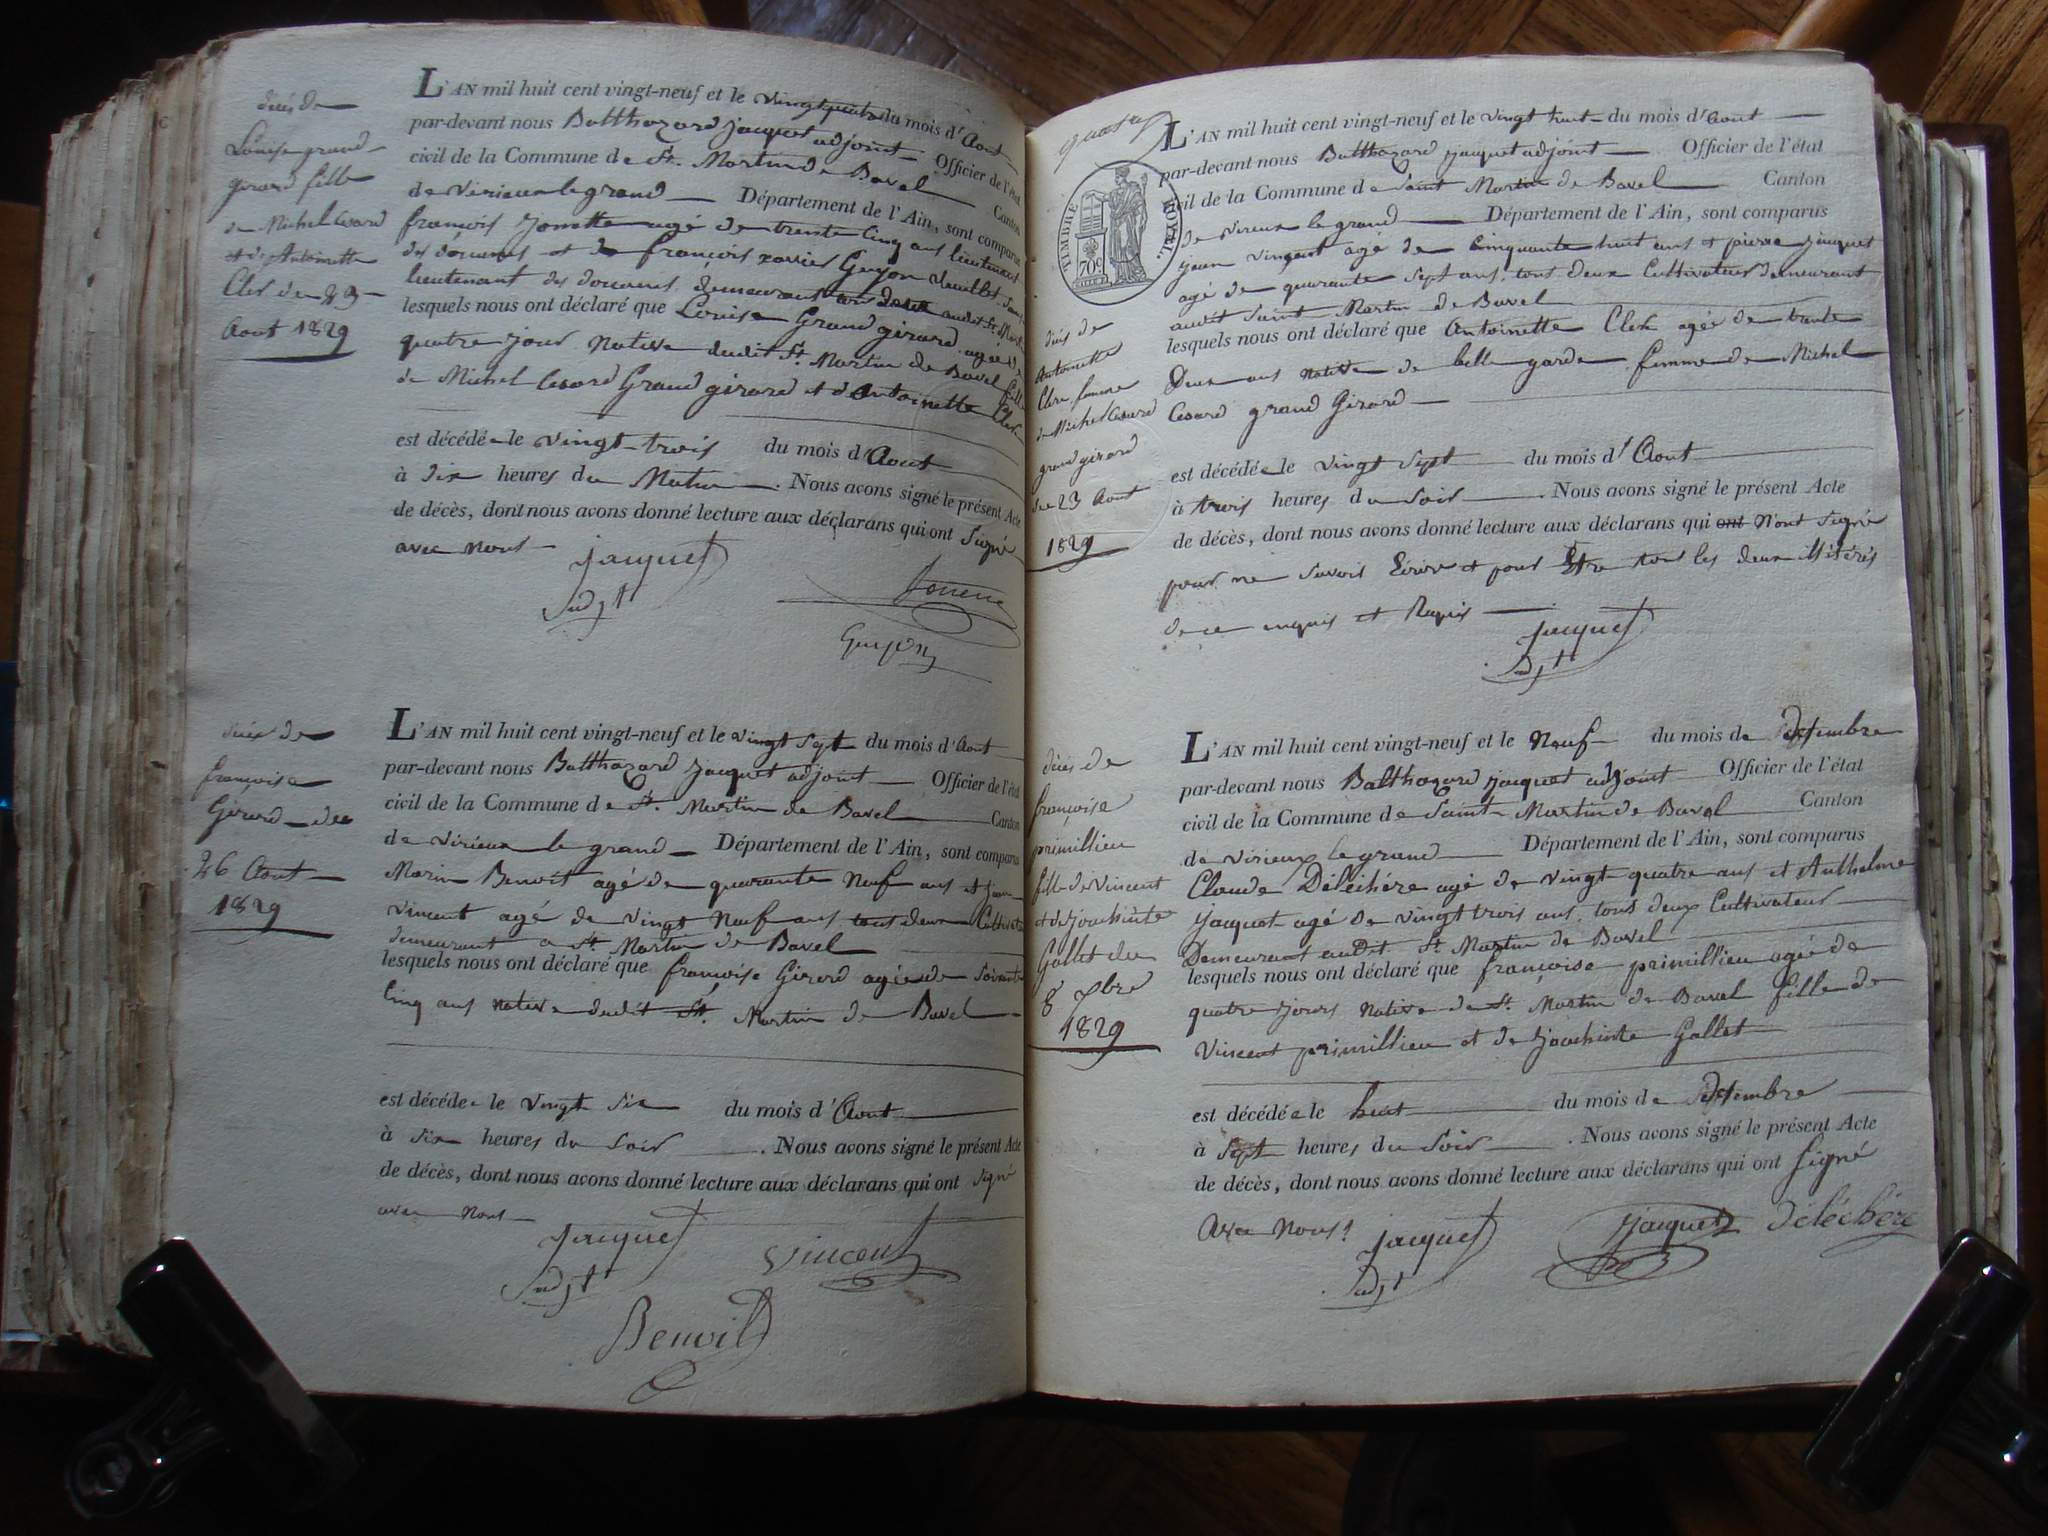 décès de
Louise grand
girard fille
de Michel Cesard
et de Antoinette
Cler du 23
Aout 1829
L'AN mil huit cent vingt-neuf et le vingt quatre du mois d'Aout
par-devant nous Balthazard jacquet adjoint Officier de l'état
civil de la Commune de St. Martin de Bavel Canton
de Virieux le grand Département de l'Ain, sont comparus
françois Jonette agé de trente cinq ans lieutenant
des douanes et de françois xavier Guyon
lieutenant des douanes demeurant tous deux audit St. Martin
lesquels nous ont déclaré que Louise Grand girard agée de
quatre jour Native dudit St. Martin de Bavel fille
de Michel Cesard Grand girard et d'Antoinette Cler
est décédée le vingt-trois du mois d'Aout
à dix heures du Matin. Nous avons signé le présent Acte
de décès, dont nous avons donné lecture aux déclarans qui ont Signé
avec Nous
jacquet
adjt
Guyon
décès de
françoise
Girard du
26 Aout
1829
L'AN mil huit cent vingt-neuf et le vingt sept du mois d'Aout
par-devant nous Balthazard jacquet adjoint Officier de l'état
civil de la Commune de St. Martin de Bavel Canton
de Virieux le grand Département de l'Ain, sont comparus
Marin Benoit agé de quarante Neuf ans et jean
vincent agé de vingt Neuf ans tous deux Cultivat
demeurant a St. Martin de Bavel
lesquels nous ont déclaré que françoise Girard agée de soixante
Cinq ans native dudit St. Martin de Bavel
est décédée le vingt Six du mois d'Aout
à Six heures du Soir. Nous avons signé le présent Acte
de décès, dont nous avons donné lecture aux déclarans qui ont signé
avec nous
jacquet
adjt
vincent
Benoit
TIMBRE ROYAL
70c
décès de
Antoinette
Cler femme
de Michel Cesard
grand girard
du 23 Aout
1829
L'AN mil huit cent vingt-neuf et le vingt huit du mois d'aout
par-devant nous Balthazard jacquet adjoint Officier de l'état
civil de la Commune de Saint Martin de Bavel Canton
de Virieux le grand Département de l'Ain, sont comparus
jean vincent agé de cinquante huit ans et pierre jacquet
agé de quarante sept ans, tous deux Cultivateur demeurant
audit Saint Martin de Bavel
lesquels nous ont déclaré que Antoinette Cler agée de trente
Deux ans native de belle garde femme de Michel
Cesard grand Girard
est décédée le vingt sept du mois d'Aout
à trois heures du soir. Nous avons signé le présent Acte
de décès, dont nous avons donné lecture aux déclarans qui ont N'ont Signé
pour ne savoir Ecrire et pour Etre tous les deux illitérés
de ce enquis et Requis
jacquet
adjt
décès de
françoise
primillieu
fille de Vincent
et de joachinte
Gallet du
8 7bre
1829
L'AN mil huit cent vingt-neuf et le Neuf du mois de Septembre
par-devant nous Balthazard jacquet adjoint Officier de l'état
civil de la Commune de Saint Martin de Bavel Canton
de Virieux le grand Département de l'Ain, sont comparus
Claude Déléchére agé de vingt quatre ans et Anthelme
jacquet agé de vingt trois ans, tous deux Cultivateur
Demeurant audit St. Martin de Bavel
lesquels nous ont déclaré que françoise primillieu agée de
quatre jours Native de St. Martin de Bavel fille de
Vincent primillieu et de joachinte Gallet
est décédée le huit du mois de Septembre
à Sept heures du Soir. Nous avons signé le présent Acte
de décès, dont nous avons donné lecture aux déclarans qui ont Signé
Avec Nous
jacquet
adjt
jacquet
Déléchére